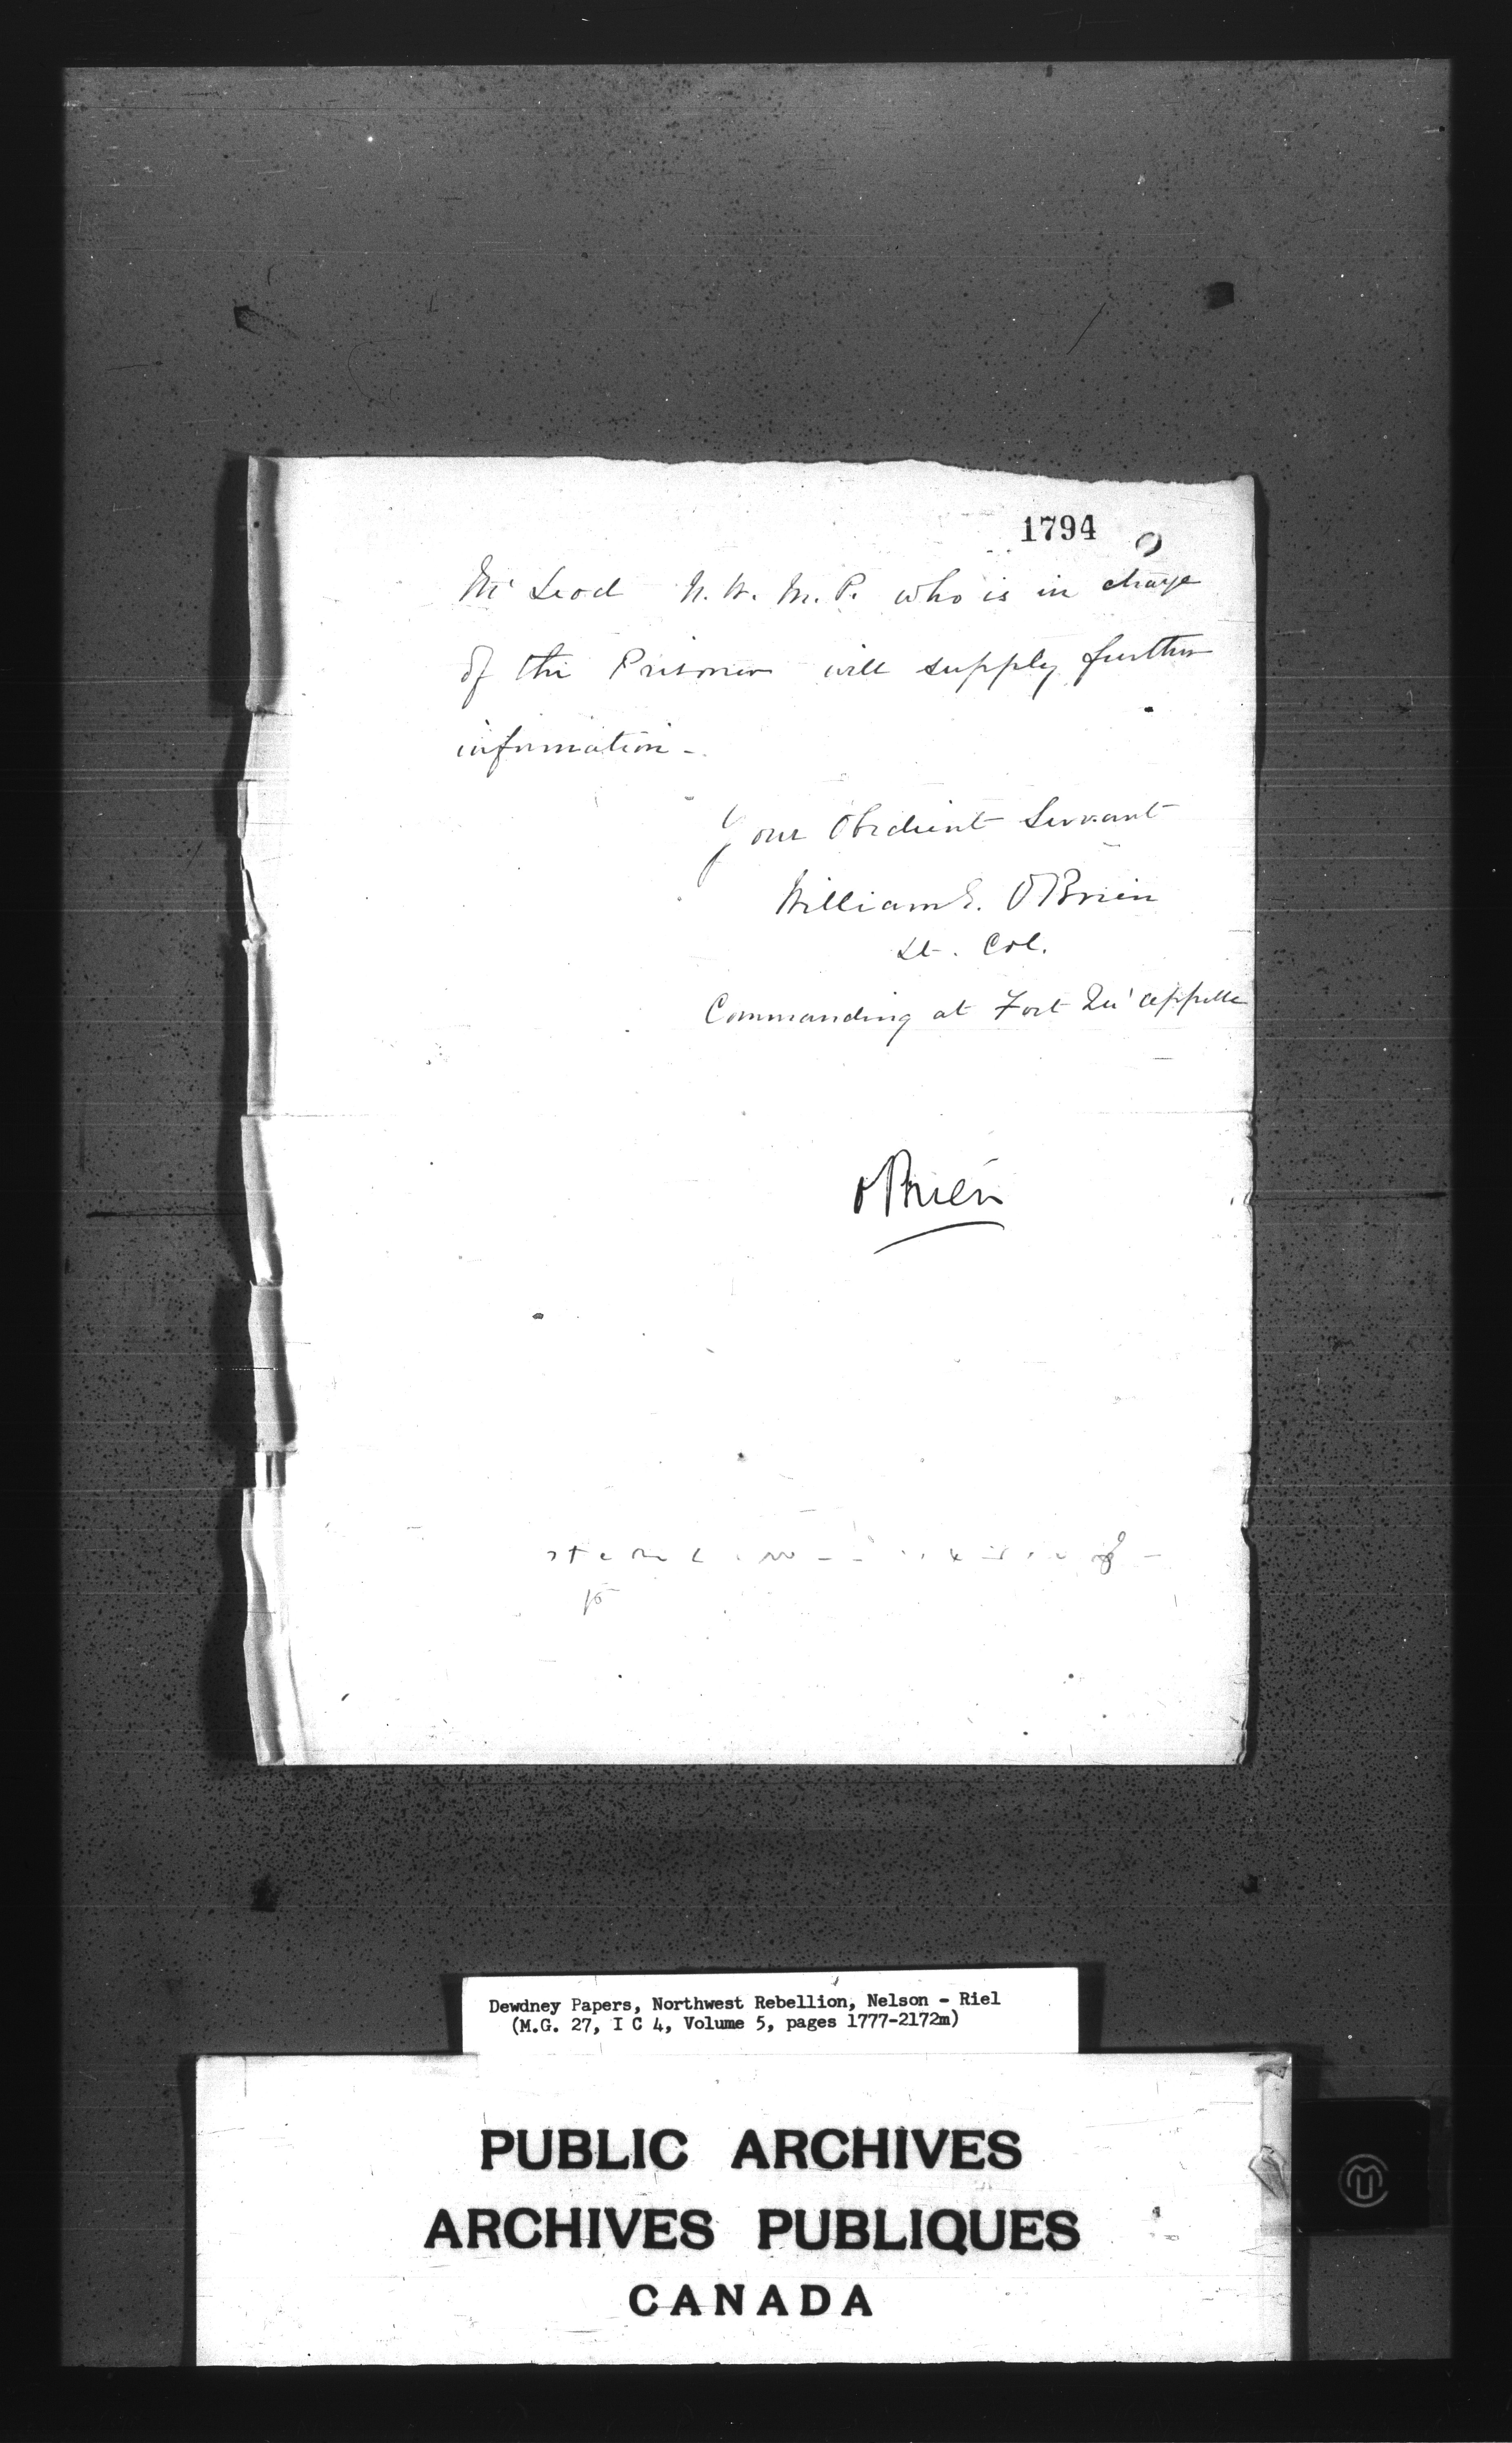 1794
2
McLeod N. W. M. P. who is in charge
of the Prisoner will supply further
information -
Your Obedient Servant
William E. O'Brien
Lt. Col.
Commanding at Fort Qu'appelle
O'Brien
Dewdney Papers, Northwest Rebellion, Nelson - Riel
(M.G. 27, I C 4, Volume 5, pages 1777-2172m)
PUBLIC ARCHIVES
ARCHIVES PUBLIQUES
CANADA